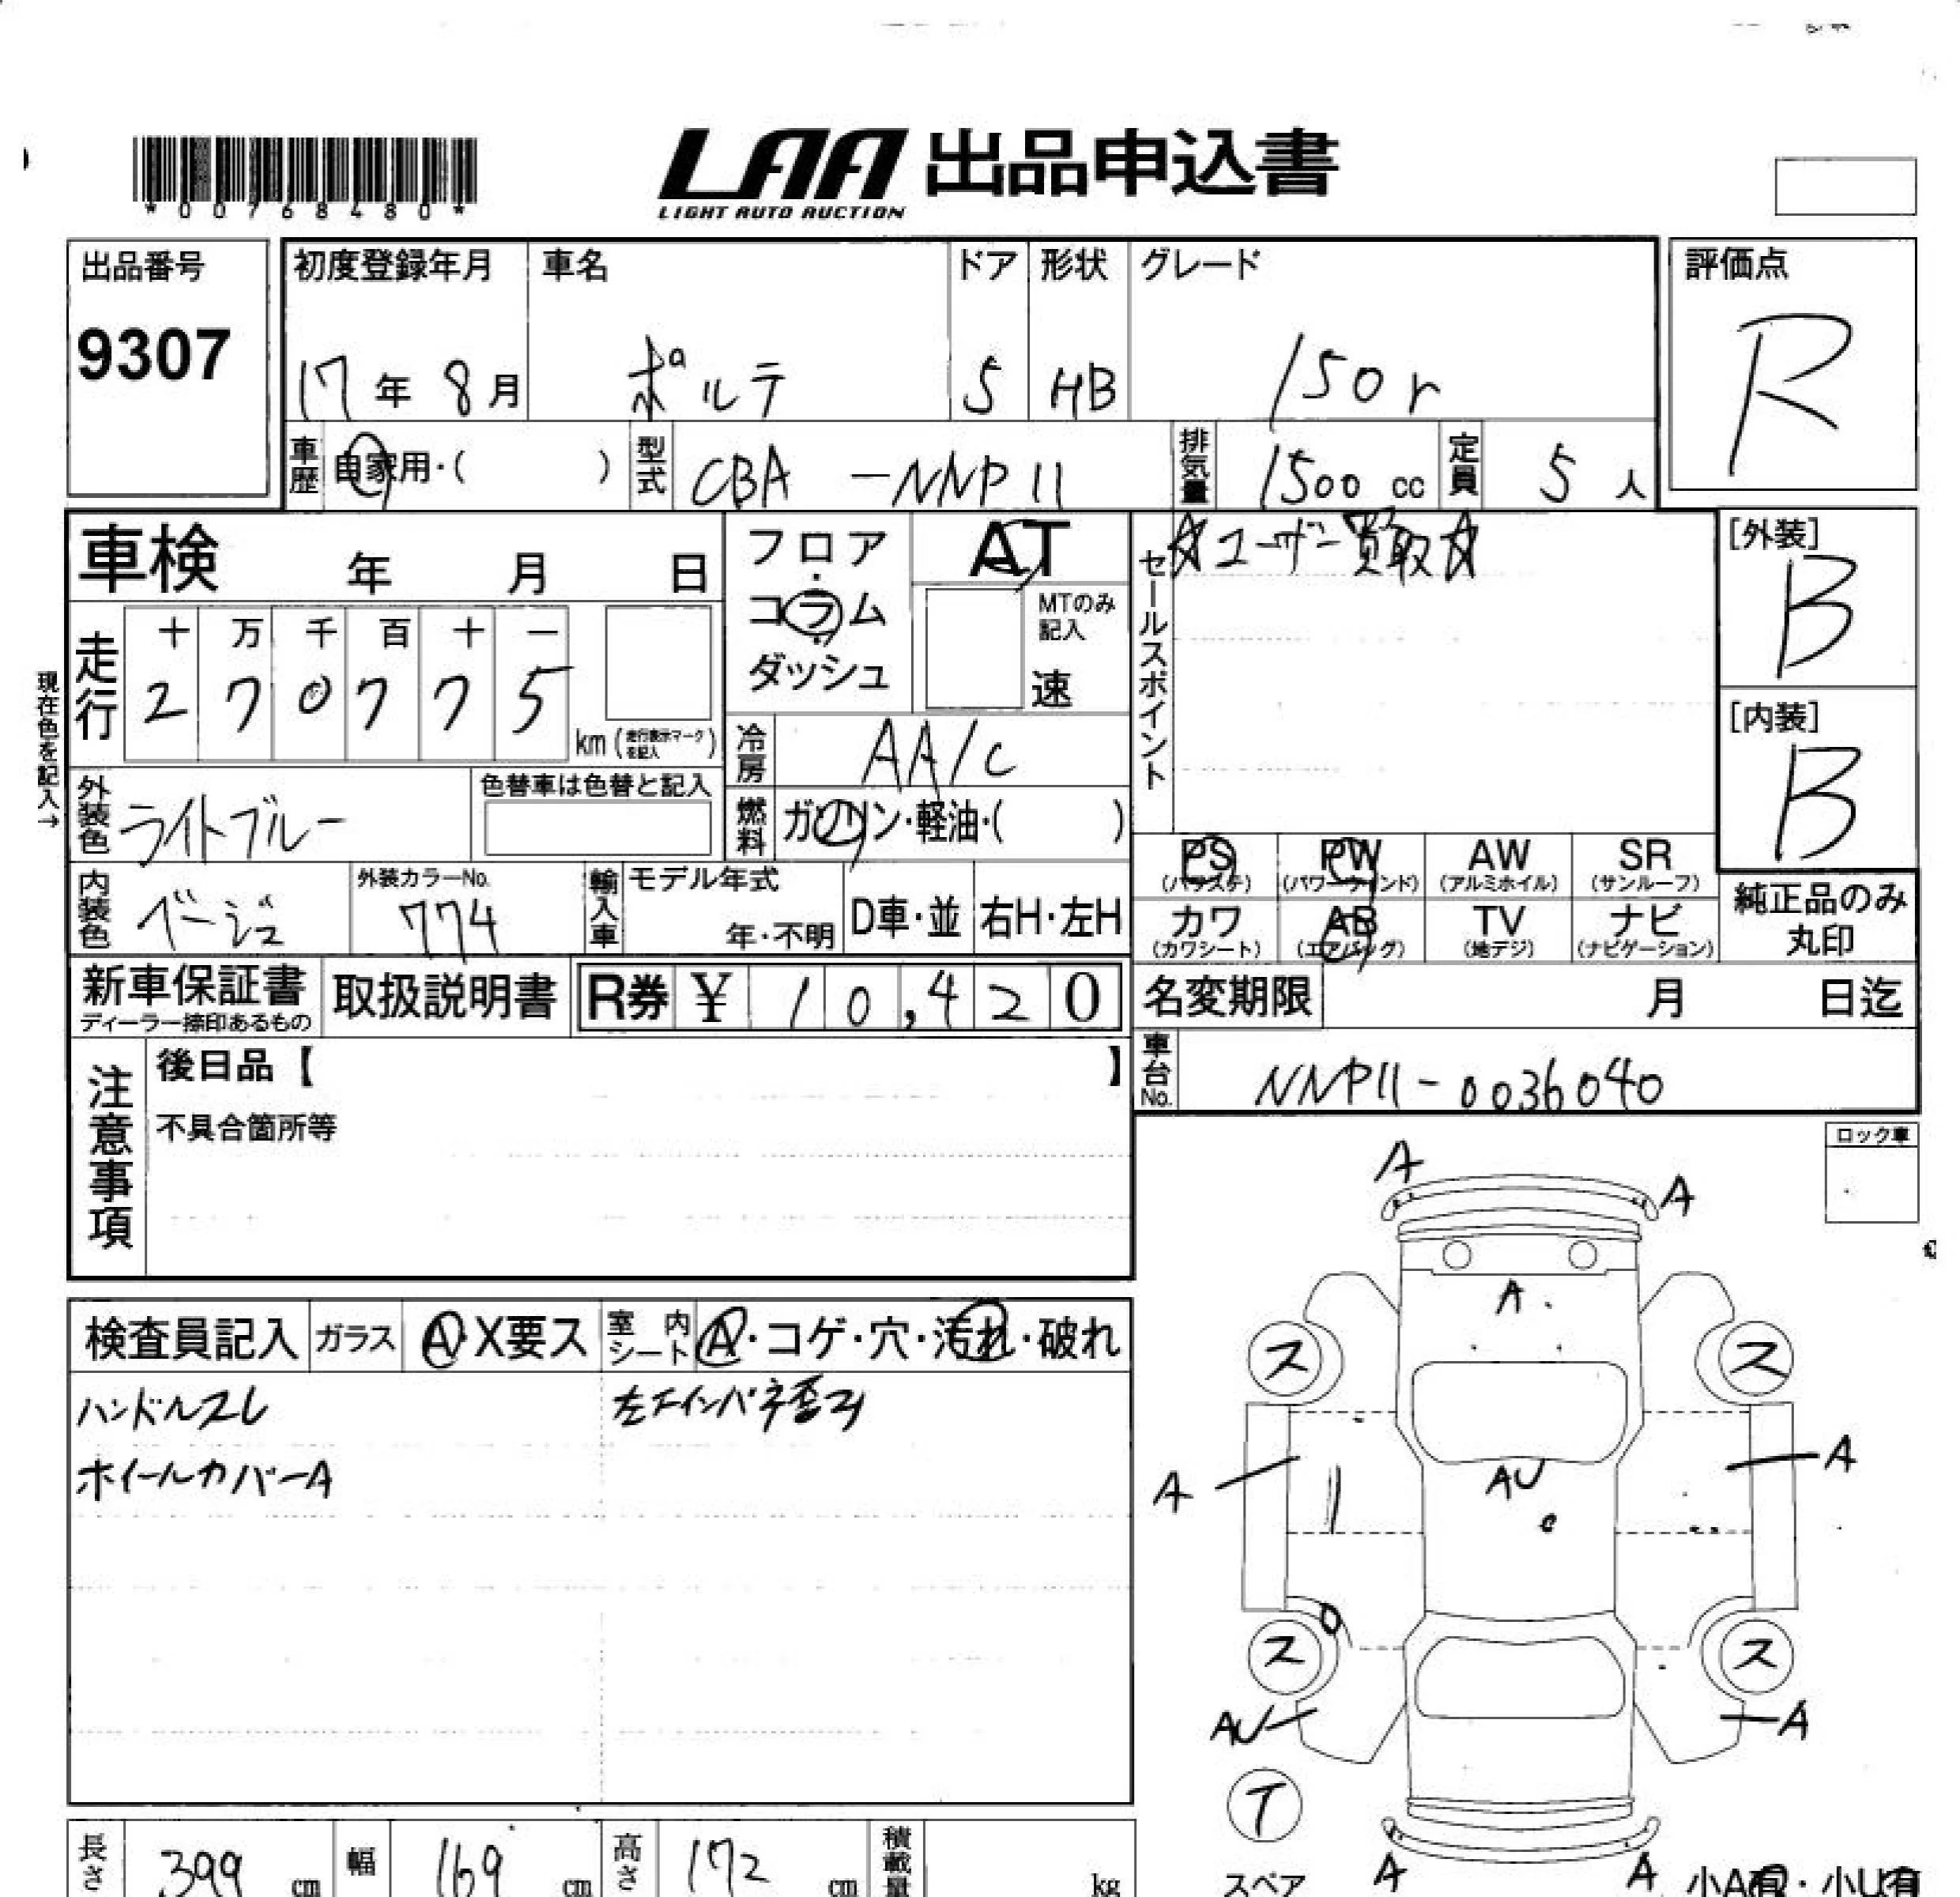 *00768480*
LAA 出品申込書
LIGHT AUTO AUCTION
出品番号
9307
初度登録年月
17年 8月
車名
ポルテ
ドア
5
形状
HB
グレード
150r
評価点
R
車歴 自家用・( )
型式 CBA -NNP11
排気量 1500 cc
定員 5人
車検 年 月 日
フロア・コラム・ダッシュ
AT
MTのみ記入
速
セールスポイント
☆ユーザー買取☆
[外装]
B
[内装]
B
現在色を記入→
走行
十 万 千 百 十 一
2 7 0 7 7 5
km (走行表示マークを記入)
冷房 AA/C
外装色 ライトブルー
色替車は色替と記入
燃料 ガソリン・軽油・( )
内装色 ベージュ
外装カラーNo.
774
輸入車
モデル年式
年・不明
D車・並
右H・左H
PS (パワステ)
PW (パワーウィンド)
AW (アルミホイル)
SR (サンルーフ)
カワ (カワシート)
AB (エアバッグ)
TV (地デジ)
ナビ (ナビゲーション)
純正品のみ丸印
新車保証書
ディーラー捺印あるもの
取扱説明書
R券 ¥ 10,420
名変期限 月 日迄
注意事項
後日品【 】
不具合箇所等
車台No. NNP11-0036040
ロック車
検査員記入 ガラス A・X要ス 室内シート A・コゲ・穴・汚れ・破れ
ハンドルスレ
ホイールカバーA
A
A
A
ス
ス
A
A
AU
ス
ス
AU
A
T
スペア
A
A
小A有・小U有
長さ 399 cm
幅 169 cm
高さ 172 cm
積載量 kg